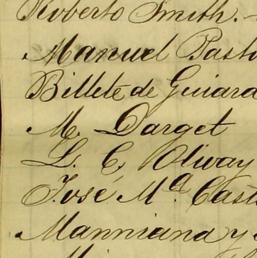 Roberto Smith.
Manuel Past
Billete de Guiara
M. Darget
L. E. Olivay
Jose Mª Cast
Manniana y